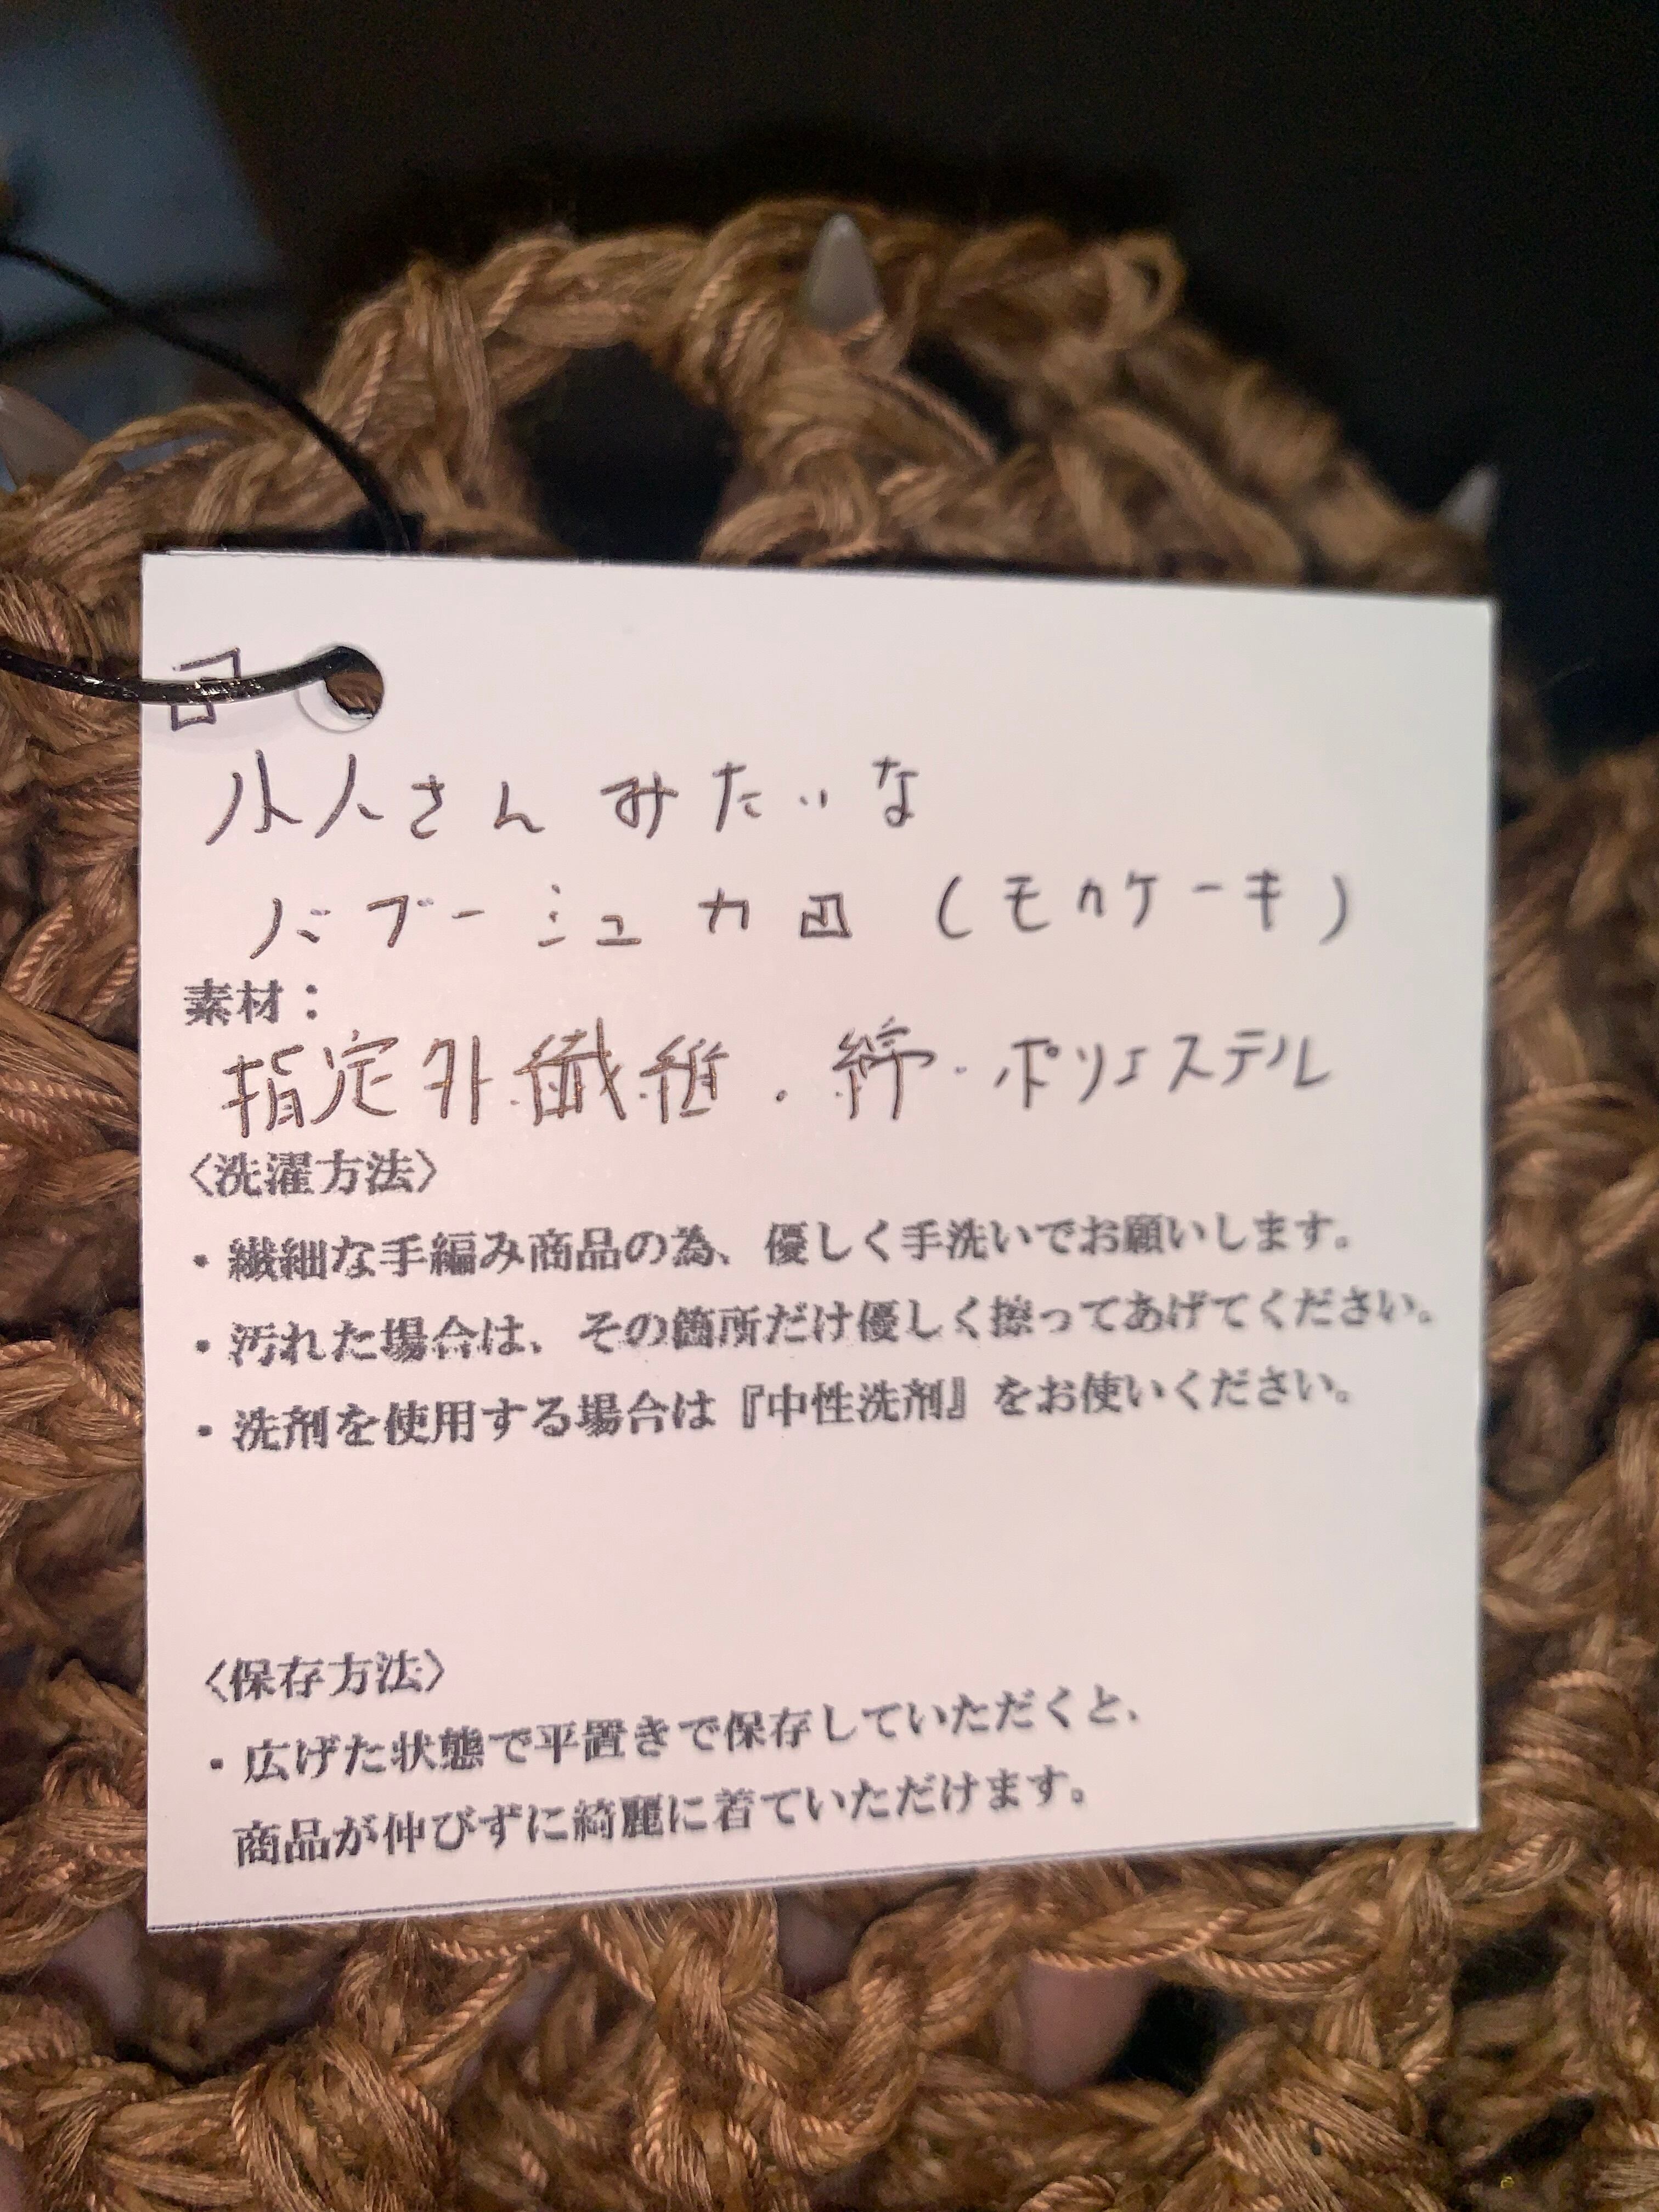 小人さんみたいな
バブーシュカ凹(モカケーキ)
素材:
指定外繊維.綿.ポリエステル
〈洗濯方法〉
・繊細な手編み商品の為、優しく手洗いでお願いします。
・汚れた場合は、その箇所だけ優しく擦ってあげてください。
・洗剤を使用する場合は『中性洗剤』をお使いください。
〈保存方法〉
・広げた状態で平置きで保存していただくと、
商品が伸びずに綺麗に着ていただけます。